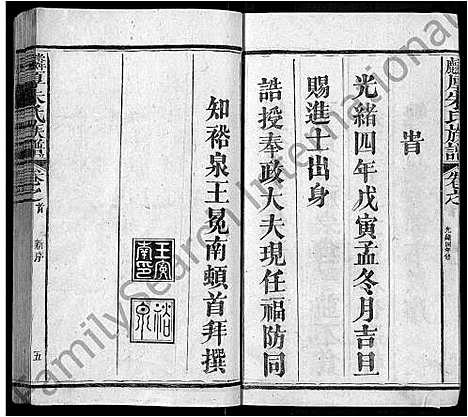 朱氏族譜
卷之
光緒四年修
旹
光緒四年戊寅孟冬月吉旦
賜進士出身
誥授奉政大夫現任福防同
知裕泉王冕南頓首拜撰
王冕南印
裕泉
朱氏族譜
卷之首
新序
五
FamilySearch International